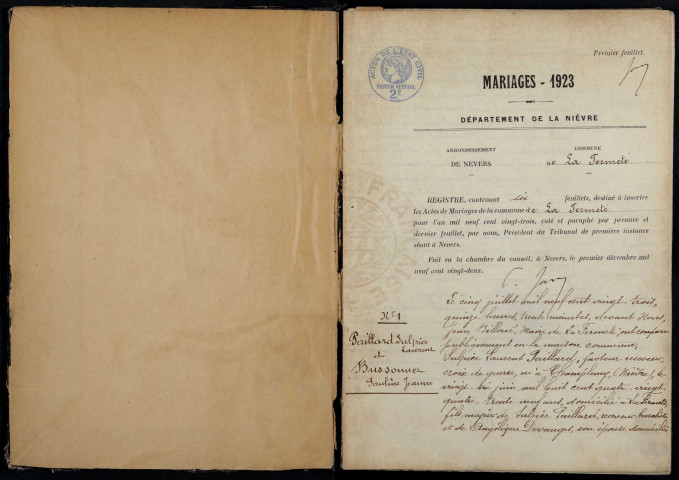 Premier feuillet.
ACTES DE L'ÉTAT CIVIL
PAPIER SPÉCIAL
2F
MARIAGES - 1923
DÉPARTEMENT DE LA NIÈVRE
ARRONDISSEMENT
DE NEVERS
COMMUNE
DE La Fermeté
REGISTRE, contenant six feuillets, destiné à inscrire
les Actes de Mariages de la commune de La Fermeté
pour l'an mil neuf cent vingt-trois, coté et paraphé par premier et
dernier feuillet, par nous, Président du Tribunal de première instance
séant à Nevers.
Fait en la chambre du conseil, à Nevers, le premier décembre mil
neuf cent vingt-deux.
N° 1
Paillard Sulpice
Laurent
et
Bussonnet
Pauline Jeanne
Le cinq juillet mil neuf cent vingt trois,
quinze heures, trente minutes, devant Nous,
Jean, Maire de La Fermeté, ont comparu
publiquement en la maison commune,
Sulpice Laurent Paillard, facteur receveur,
croix de guerre, né à Champlemy, (Nièvre), le
vingt six juin mil huit cent quatre vingt
quatre, trente neuf ans, domicilié à La Fermeté
fils majeur de Sulpice Paillard, receveur buraliste
et de Angélique Devanget, son épouse domiciliés